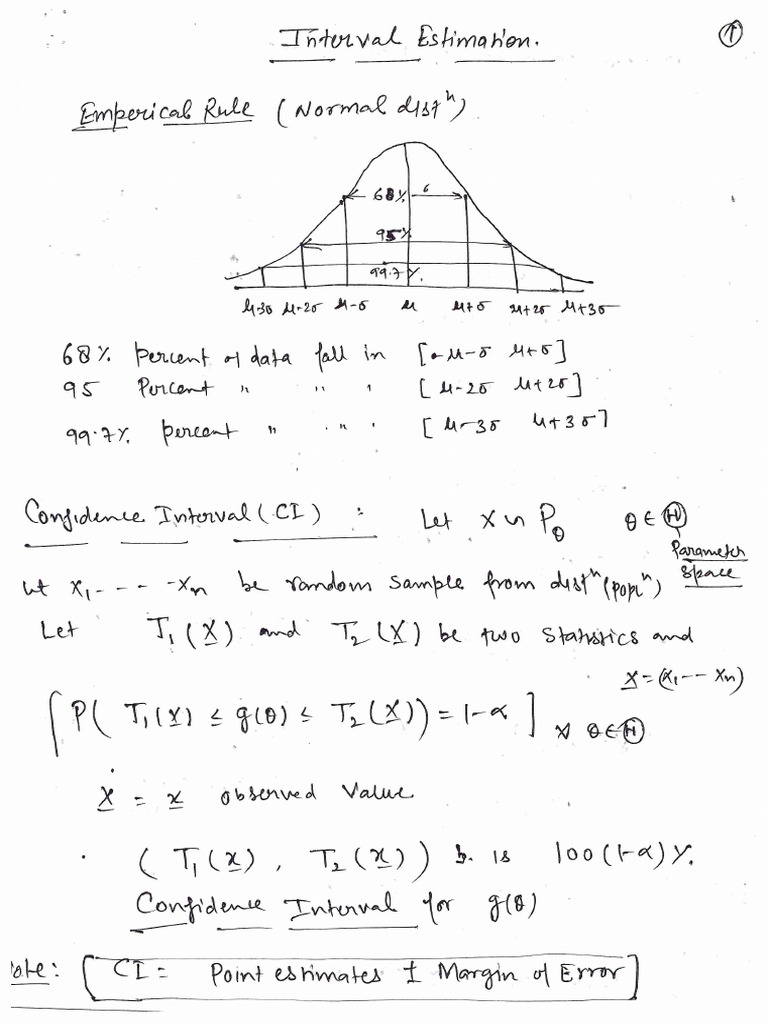 Interval Estimation.
①
Emperical Rule (Normal distⁿ)
68%
95%
99.7%
μ-3σ μ-2σ μ-σ μ μ+σ μ+2σ μ+3σ
68% percent of data fall in [μ-σ μ+σ]
95 Percent " " " [μ-2σ μ+2σ]
99.7% percent " " " [μ-3σ μ+3σ]
Confidence Interval (CI) : Let X ~ P_θ θ ∈ Ⓗ
Parameter
Space
let X₁ - - - - Xₙ be random sample from distⁿ (popⁿ)
Let T₁(X) and T₂(X) be two Statistics and
X = (X₁ -- Xₙ)
[P( T₁(X) ≤ g(θ) ≤ T₂(X)) = 1-α] ∀ θ∈Ⓗ
X = x observed Value
( T₁(x) , T₂(x) ) is 100(1-α)%
Confidence Interval for g(θ)
ote: [CI = Point estimates ± Margin of Error]